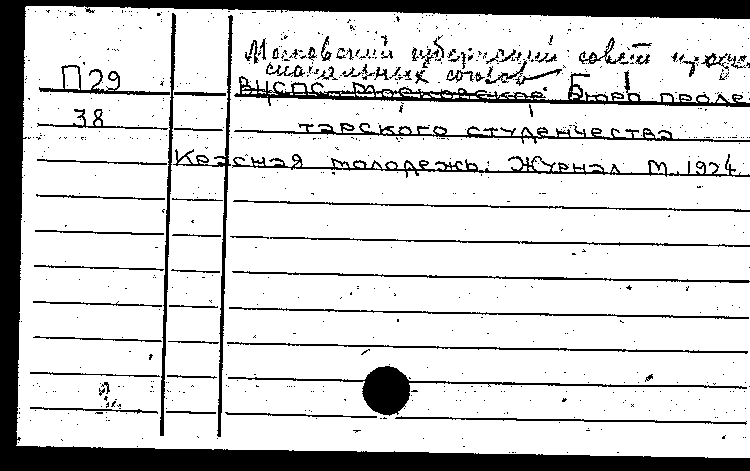 Московский губернский совет профес
сиональных союзов
П29
ВЦСПС Московское Бюро проле
38
тарского студенчества
Красная молодежь. Журнал М. 1924